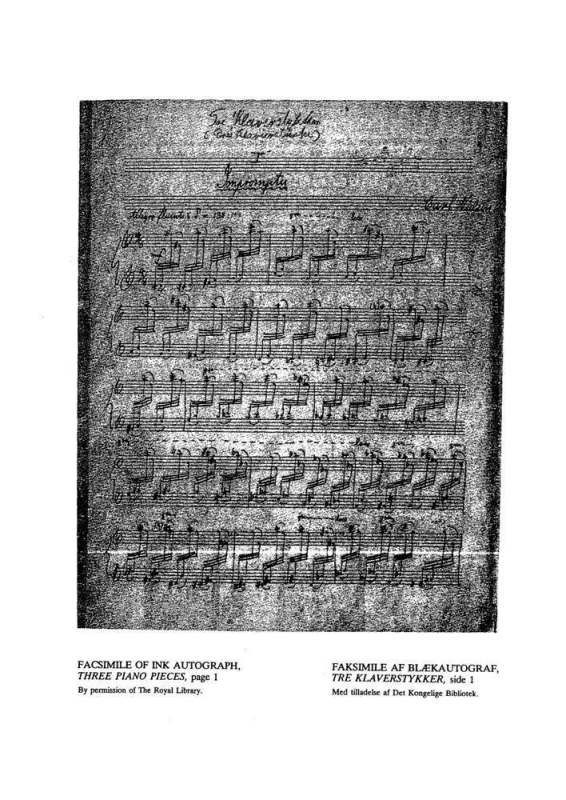 Tre Klaverstykker
(Drei Klavierstücke)
I
Impromptu
Carl Nielsen
Allegro fluente
FACSIMILE OF INK AUTOGRAPH,
THREE PIANO PIECES, page 1
By permission of The Royal Library.
FAKSIMILE AF BLÆKAUTOGRAF,
TRE KLAVERSTYKKER, side 1
Med tilladelse af Det Kongelige Bibliotek.